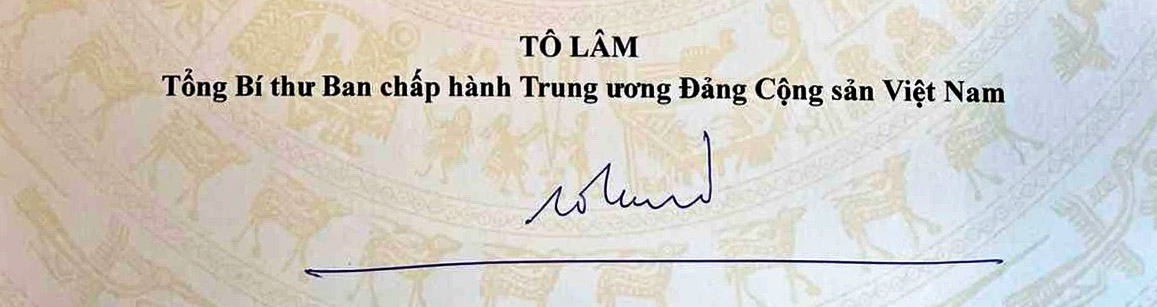 TÔ LÂM
Tổng Bí thư Ban chấp hành Trung ương Đảng Cộng sản Việt Nam